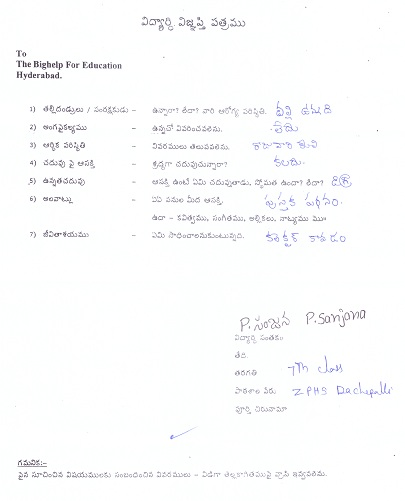 విద్యార్థి విజ్ఞప్తి పత్రము
To
The Bighelp For Education
Hyderabad.
1) తల్లిదండ్రులు / సంరక్షకుడు – ఉన్నారా? లేదా? వారి ఆరోగ్య పరిస్థితి. తల్లి
2) అంగవైకల్యము – ఉన్నచో వివరించవలెను. లేదు
3) ఆర్థిక పరిస్థితి – వివరములు తెలుపవలెను.
4) చదువు పై ఆసక్తి – శ్రద్ధగా చదువుచున్నారా? కలదు.
5) ఉన్నతచదువు – ఆసక్తి ఉంటే ఏమి చదువుతాడు. స్తోమత ఉందా? లేదా?
6) అలవాట్లు – ఏఏ పనుల మీద ఆసక్తి. పుస్తక పఠనం.
ఉదా – కవిత్వము, సంగీతము, అల్లికలు, నాట్యము మొ
7) జీవితాశయము – ఏమి సాధించాలనుకుంటున్నది. కలెక్టర్ కావడం
P. సంజన P. Sanjana
విద్యార్థి సంతకము
తేది
తరగతి 7th class
పాఠశాల పేరు ZPHS Dachepalli
పూర్తి చిరునామా
గమనిక:-
పైన సూచించిన విషయములకు సంబందించిన వివరములు – విడిగా తెల్లకాగితముపై వ్రాసి ఇవ్వవలెను.